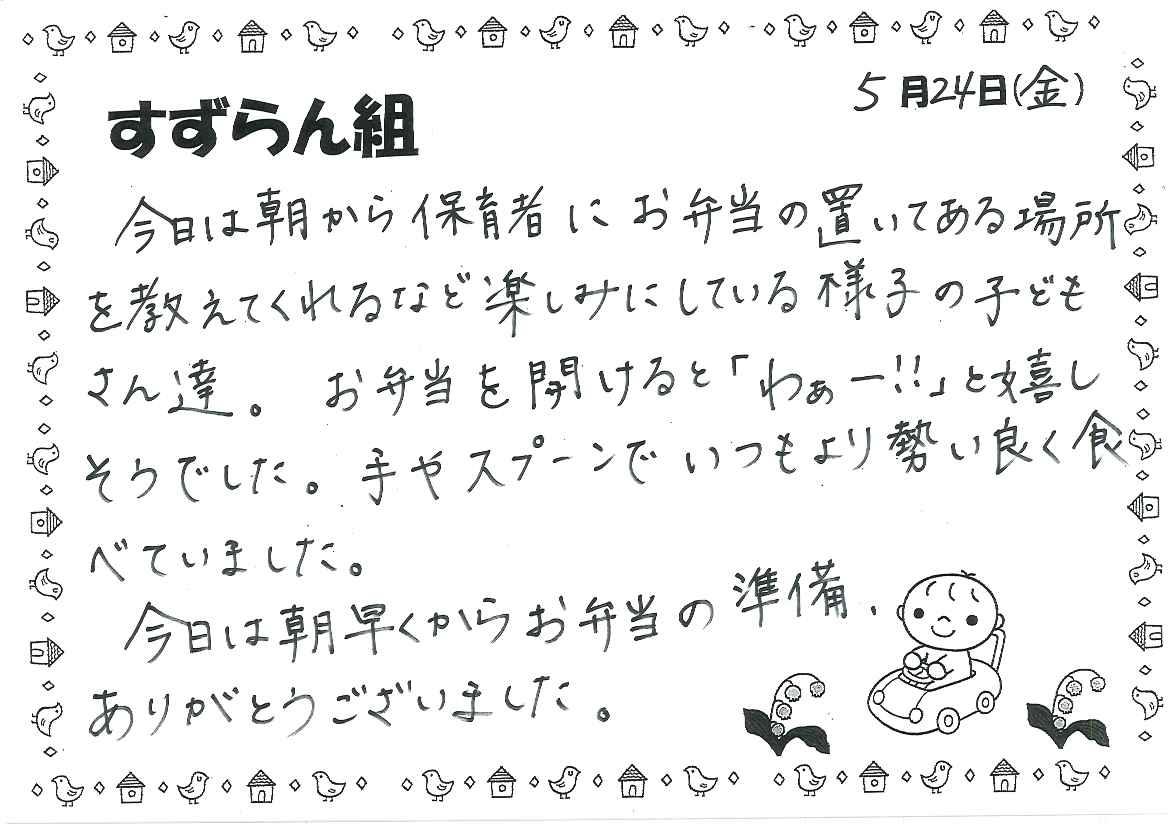 5月24日(金)
すずらん組
今日は朝から保育者にお弁当の置いてある場所
を教えてくれるなど楽しみにしている様子の子ども
さん達。お弁当を開けると「わぁー!!」と嬉し
そうでした。手やスプーンでいつもより勢い良く食
べていました。
今日は朝早くからお弁当の準備、
ありがとうございました。